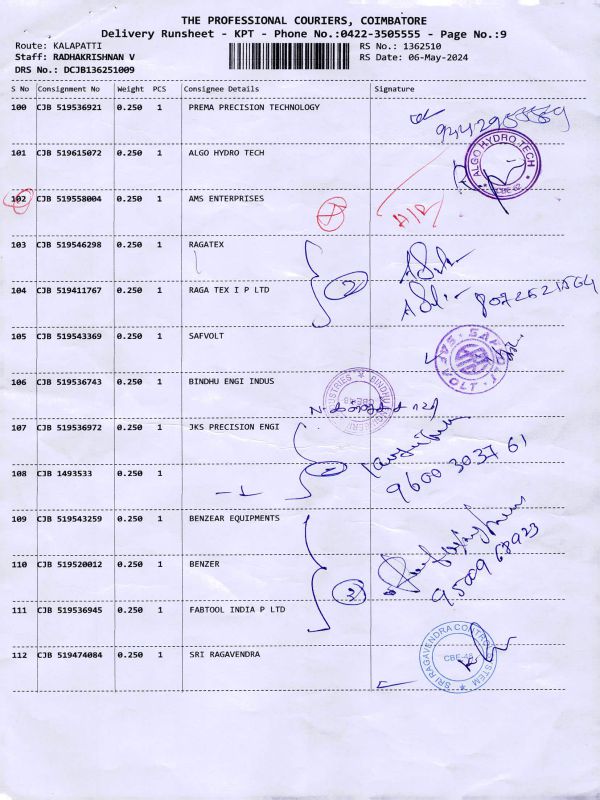 THE PROFESSIONAL COURIERS, COIMBATORE
Delivery Runsheet - KPT - Phone No.:0422-3505555 - Page No.:9
Route: KALAPATTI
RS No.: 1362510
Staff: RADHAKRISHNAN V
RS Date: 06-May-2024
DRS No.: DCJB136251009
S No Consignment No Weight PCS Consignee Details Signature
100 CJB 519536921 0.250 1 PREMA PRECISION TECHNOLOGY
101 CJB 519615072 0.250 1 ALGO HYDRO TECH
ALGO HYDRO TECH
CBE-62
102 CJB 519558004 0.250 1 AMS ENTERPRISES
103 CJB 519546298 0.250 1 RAGATEX
104 CJB 519411767 0.250 1 RAGA TEX I P LTD
2
105 CJB 519543369 0.250 1 SAFVOLT
SAFVOLT
106 CJB 519536743 0.250 1 BINDHU ENGI INDUS
107 CJB 519536972 0.250 1 JKS PRECISION ENGI
108 CJB 1493533 0.250 1
9600 3037 61
109 CJB 519543259 0.250 1 BENZEAR EQUIPMENTS
110 CJB 519520012 0.250 1 BENZER
3
95096 68923
111 CJB 519536945 0.250 1 FABTOOL INDIA P LTD
112 CJB 519474084 0.250 1 SRI RAGAVENDRA
SRI RAGAVENDRA CONTROL SYSTEM
CBE-48